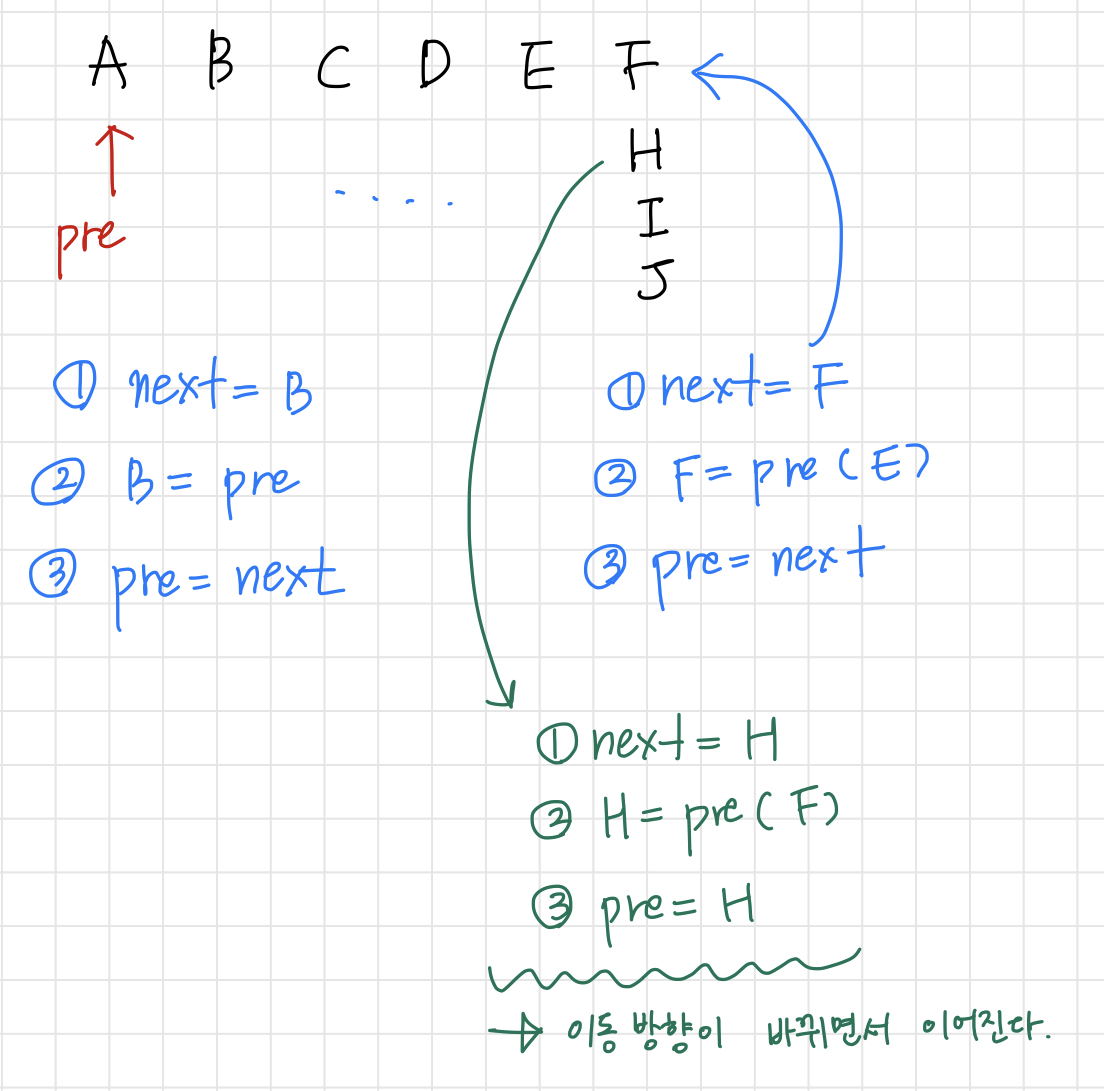 A B C D E F
H
I
J
pre
① next = B
② B = pre
③ pre = next
① next = F
② F = pre (E)
③ pre = next
① next = H
② H = pre ( F )
③ pre = H
→ 이동 방향이 바뀌면서 이어진다.